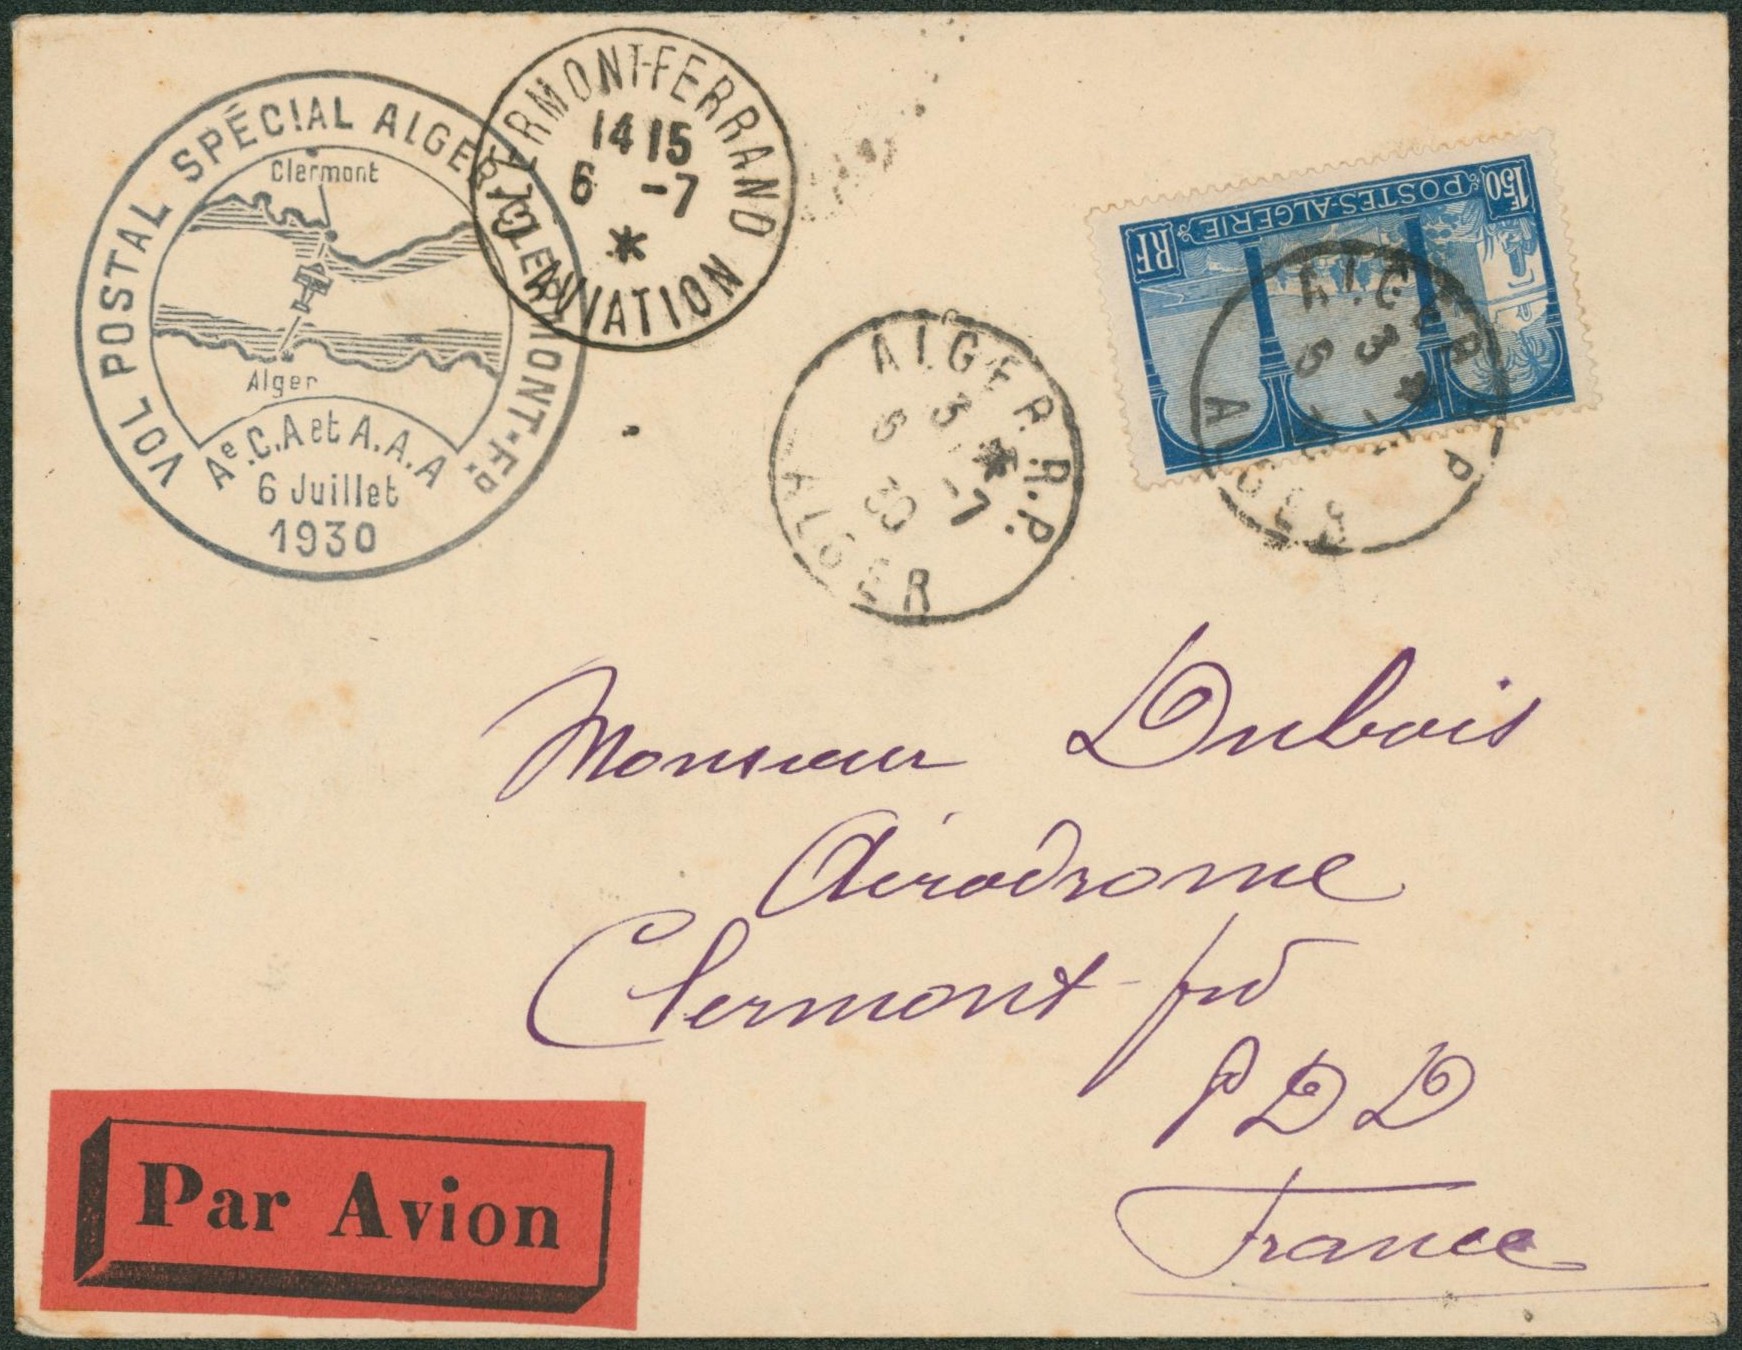 VOL POSTAL SPÉCIAL ALGER-CLERMONT-Fd
Clermont
Alger
Ae.C.A et A.A.A
6 Juillet
1930
CLERMONT-FERRAND
14 15
6 -7
*
AVIATION
ALGER R.P.
3 *
6 -7
30
ALGER
1F50
POSTES-ALGÉRIE
RF
ALGER R.P.
3 *
ALGER
Monsieur Dubois
Aérodrome
Clermont-fnd
P D D
France
Par Avion